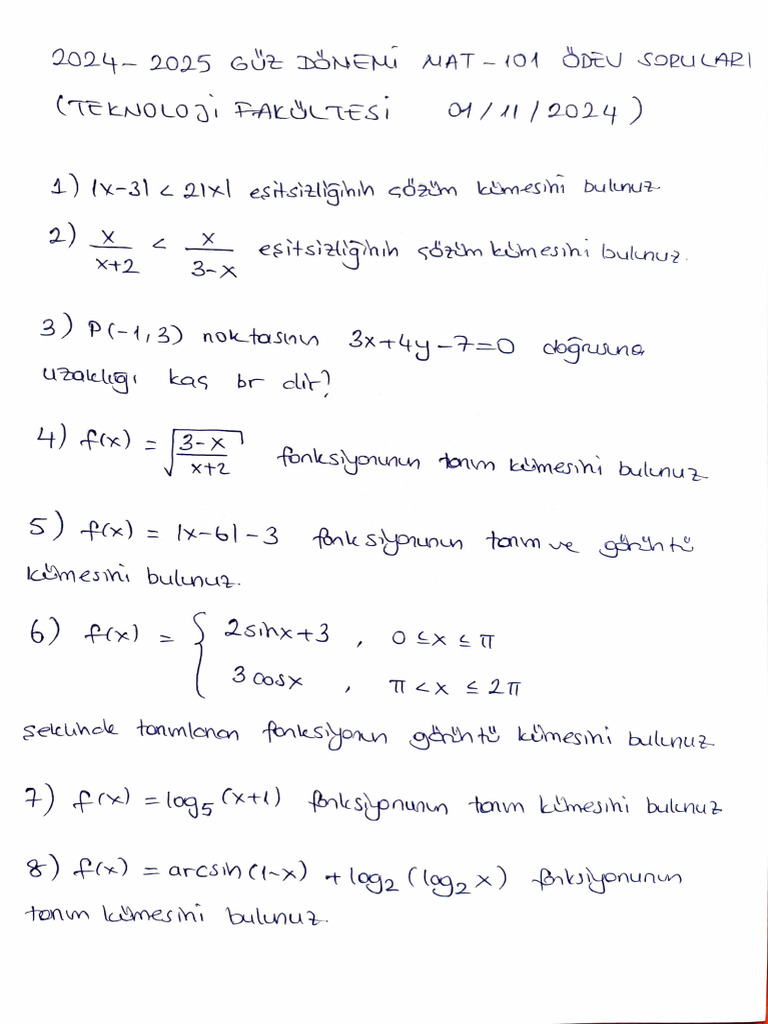 2024-2025 GÜZ DÖNEMİ MAT-101 ÖDEV SORULARI
(TEKNOLOJİ FAKÜLTESİ 01/11/2024)
1) |x-3| < 2|x| eşitsizliğinin çözüm kümesini bulunuz.
2) x/(x+2) < x/(3-x) eşitsizliğinin çözüm kümesini bulunuz.
3) P(-1,3) noktasının 3x+4y-7=0 doğrusuna
uzaklığı kaç br dir?
4) f(x) = √((3-x)/(x+2)) fonksiyonunun tanım kümesini bulunuz
5) f(x) = |x-6|-3 fonksiyonunun tanım ve görüntü
kümesini bulunuz.
6) f(x) = { 2sinx+3 , 0 ≤ x ≤ π
3cosx , π < x ≤ 2π
şeklinde tanımlanan fonksiyonun görüntü kümesini bulunuz
7) f(x) = log₅(x+1) fonksiyonunun tanım kümesini bulunuz
8) f(x) = arcsin(1-x) + log₂(log₂x) fonksiyonunun
tanım kümesini bulunuz.